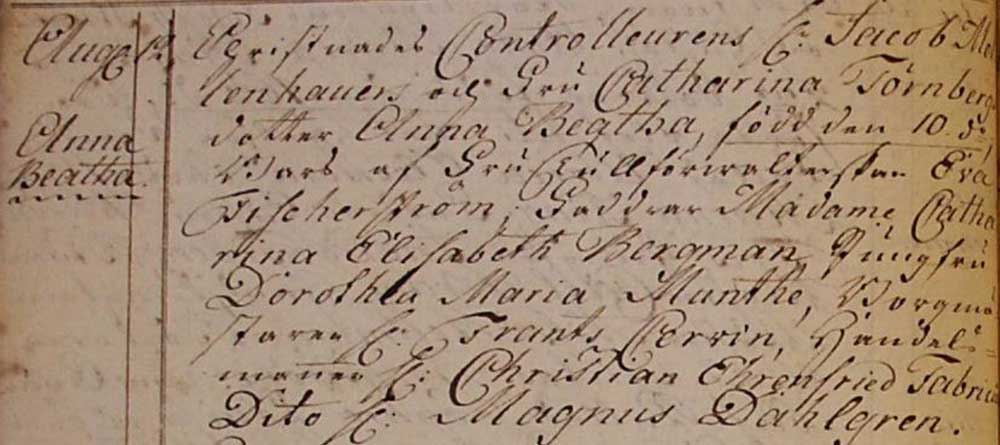 Aug. 12. Christnades Controlleurens H: Jacob Mol
lenhauers och Fru Catharina Törnbergs
dotter Anna Beatha, född den 10. d:o
Anna
Beatha.
Bars af Fru Tullförwalterskan Eva
Fischerström; Faddrar Madame Catha
rina Elisabeth Bergman, Jungfru
Dorothea Maria Munthe, Borgmä
staren H: Frants Cervin, Handels-
mannen H: Christian Ehrenfried Fabricius
Dito H: Magnus Dahlgren.